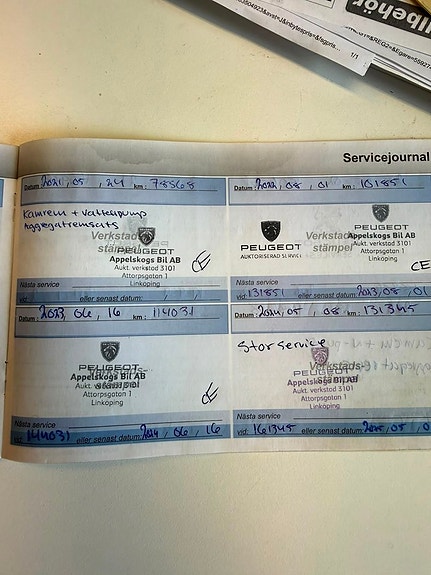 1/1
Servicejournal
Datum: 2021, 05, 24 km: 78568
Kamrem + Vattenpump
Aggregatremsats
Verkstads
PEUGEOT
Appelskogs Bil AB
Aukt. verkstad 3101
Attorpsgatan 1
Linköping
CE
Nästa service
vid: eller senast datum: , ,
Datum: 2022, 08, 01 km: 101851
PEUGEOT
AUKTORISERAD SERVICE
Verkstads
stämpel
PEUGEOT
Appelskogs Bil AB
Aukt. verkstad 3101
Attorpsgatan 1
Linköping
CE
Nästa service
vid: 131851 eller senast datum: 2023, 08, 01
Datum: 2023 06, 16 km: 114031
PEUGEOT
Appelskogs Bil AB
Aukt. verkstad 3101
Attorpsgatan 1
Linköping
CE
Nästa service
144031 eller senast datum: 2024, 06, 16
Datum: 2024, 05, 08 km: 131345
Stor service
PEUGEOT
Appelskogs Bil AB
Aukt. verkstad 3101
Attorpsgatan 1
Linköping
Nästa service
vid: 161345 eller senast datum: 2025, 05, 0